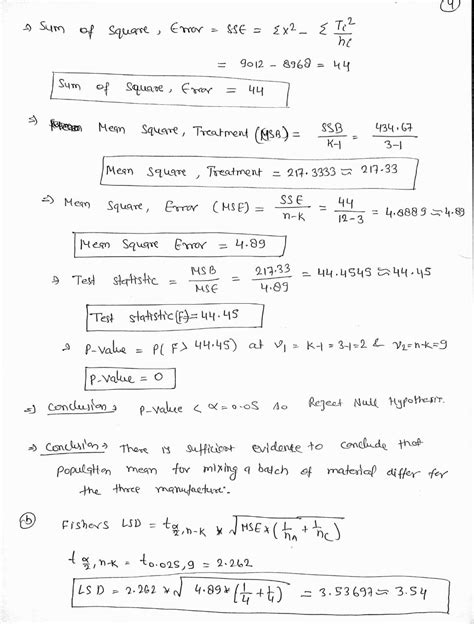 (4)
⇒ Sum of Square, Error = SSE = Σx² - Σ Ti²/ni
= 9012 - 8968 = 44
Sum of Square, Error = 44
⇒ Mean Square, Treatment (MSB) = SSB/K-1 = 434.67/3-1
Mean Square, Treatment = 217.3333 ≈ 217.33
⇒ Mean Square, Error (MSE) = SSE/n-K = 44/12-3 = 4.8889 ≈ 4.89
Mean Square Error = 4.89
⇒ Test Statistic = MSB/MSE = 217.33/4.89 = 44.4545 ≈ 44.45
Test statistic (F) = 44.45
⇒ P-Value = P( F > 44.45) at ν₁ = K-1 = 3-1=2 & ν₂=n-K=9
P-Value = 0
⇒ Conclusion → P-Value < α=0.05 so Reject Null Hypothesis.
⇒ Conclusion → There is sufficient evidence to conclude that
population mean for mixing a batch of material differ for
the three manufacture.
(b) Fishers LSD = t α/2, n-K * √MSE*(1/nA + 1/nC)
t α/2, n-K = t0.025,9 = 2.262
LSD = 2.262 * √4.89*(1/4+1/4) = 3.53697 ≈ 3.54